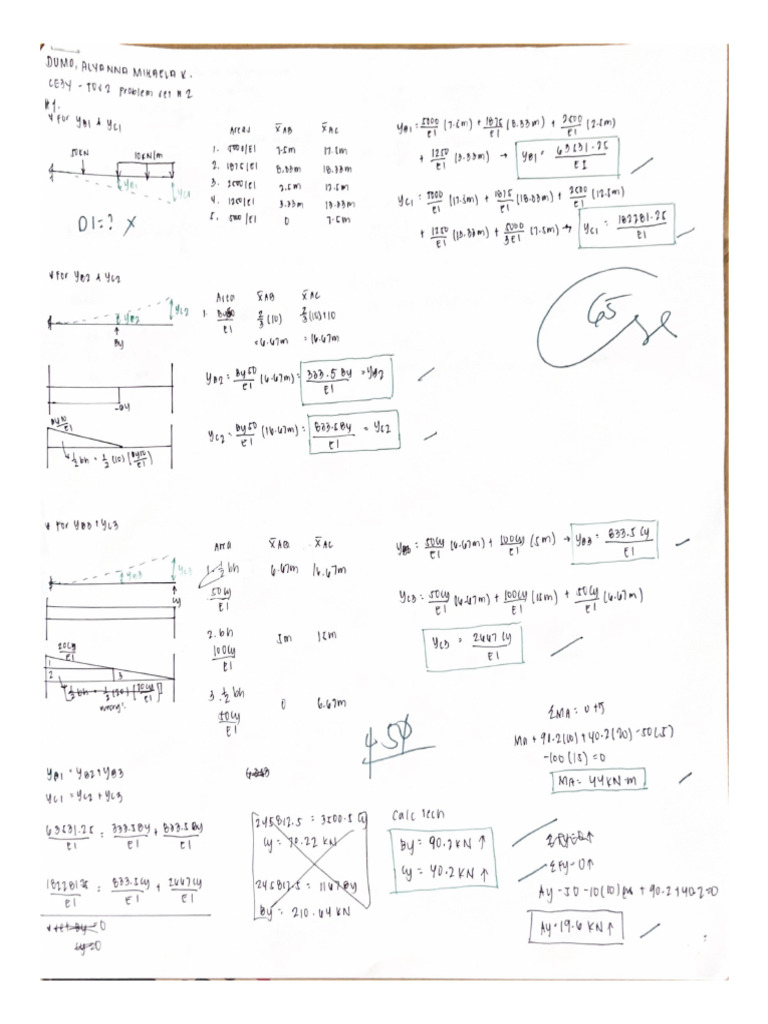 DUMO, ALYANNA MIKAELA V.
CE34 - TOS2 problem set #2
#1.
* For YB1 & YC1
50kN
10kN/m
YB1
YC1
D1=? X
Areas x̄AB x̄AC
1. 5000/EI 7.5m 17.5m
2. 1875/EI 8.33m 18.33m
3. 2500/EI 2.5m 12.5m
4. 1250/EI 3.33m 13.33m
5. 5000/EI 0 7.5m
YB1 = 5000/EI (7.5m) + 1875/EI (8.33m) + 2500/EI (2.5m)
+ 1250/EI (3.33m) → YB1 = 63631.25/EI
YC1 = 5000/EI (17.5m) + 1875/EI (18.33m) + 2500/EI (12.5m)
+ 1250/EI (13.33m) + 5000/3EI (7.5m) → YC1 = 182281.25/EI
65
* For YB2 & YC2
YB2
YC2
By
Area x̄AB x̄AC
1. By50/EI 2/3(10) 2/3(10)+10
= 6.67m = 16.67m
YB2 = By50/EI (6.67m) = 333.5 By/EI = YB2
-By
By10/EI
½bh = ½(10)(By10/EI)
YC2 = By50/EI (16.67m) = 833.5By/EI = YC2
* For YB3 & YC3
YB3
YC3
Cy
Area x̄AB x̄AC
1. ½bh 6.67m 16.67m
50Cy/EI
2. bh 5m 15m
100Cy/EI
3. ½bh 0 6.67m
50Cy/EI
YB3 = 50Cy/EI (6.67m) + 100Cy/EI (5m) → YB3 = 833.5 Cy/EI
YC3 = 50Cy/EI (16.67m) + 100Cy/EI (15m) + 50Cy/EI (6.67m)
YC3 = 2667 Cy/EI
20Cy/EI
1
2
3
½bh = ½(20)(20Cy/EI)
wrong
ΣMA = 0
MA + 90.2(10) + 40.2(20) - 50(5)
-100(15) = 0
MA = 44 kN·m
YB1 = YB2 + YB3
YC1 = YC2 + YC3
63631.25/EI = 333.5By/EI + 833.5Cy/EI
182281.25/EI = 833.5Cy/EI + 2667Cy/EI
245812.5 = 3500.5 Cy
Cy = 70.22 kN
245812.5 = 1167 By
By = 210.64 kN
Calc Tech
By = 90.2 kN ↑
Cy = 40.2 kN ↑
ΣFy = 0 ↑
Ay - 50 - 10(10) + 90.2 + 40.2 = 0
Ay = 19.6 kN ↑